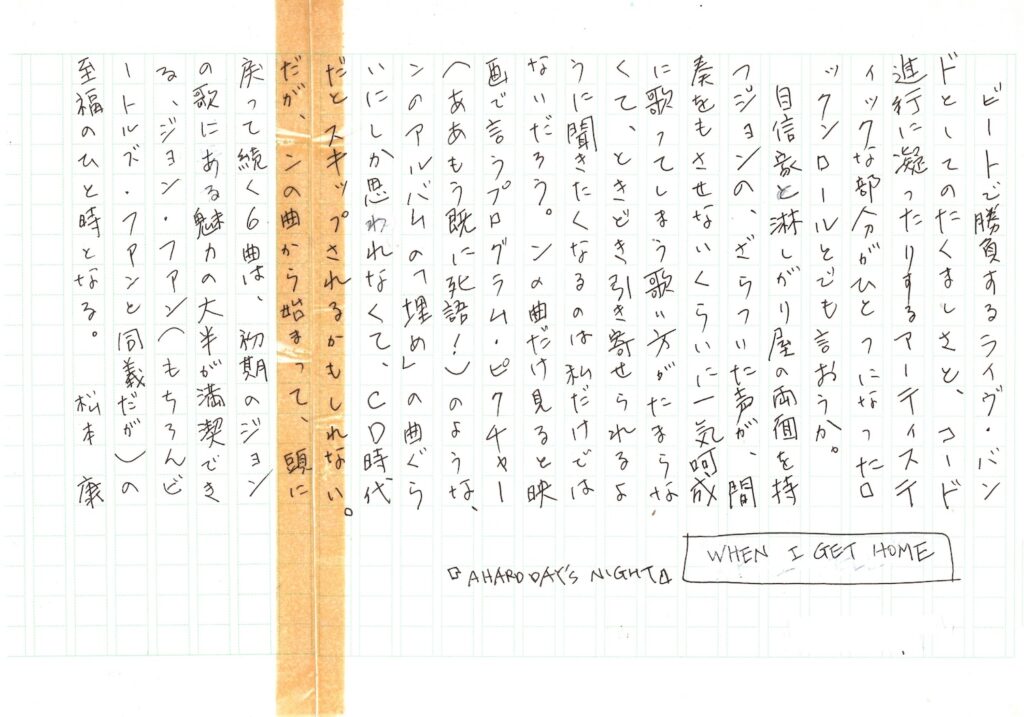 WHEN I GET HOME
『A HARD DAY'S NIGHT』
ビートで勝負するライヴ・バン
ドとしてのたくましさと、コード
進行に凝ったりするアーティステ
ィックな部分がひとつになったロ
ックンロールとでも言おうか。
自信家と淋しがり屋の両面を持
つジョンの、ざらついた声が、間
奏をもさせないくらいに一気呵成
に歌ってしまう歌い方がたまらな
くて、ときどき引き寄せられるよ
うに聞きたくなるのは私だけでは
ないだろう。この曲だけ見ると映
画で言うプログラム・ピクチャー
(ああもう既に死語!)のような、
このアルバムの「埋め」の曲ぐら
いにしか思われなくて、CD時代
だとスキップされるかもしれない。
だが、この曲から始まって、頭に
戻って続く6曲は、初期のジョン
の歌にある魅力の大半が満喫でき
る、ジョン・ファン(もちろんビ
ートルズ・ファンと同義だが)の
至福のひと時となる。 松本 康